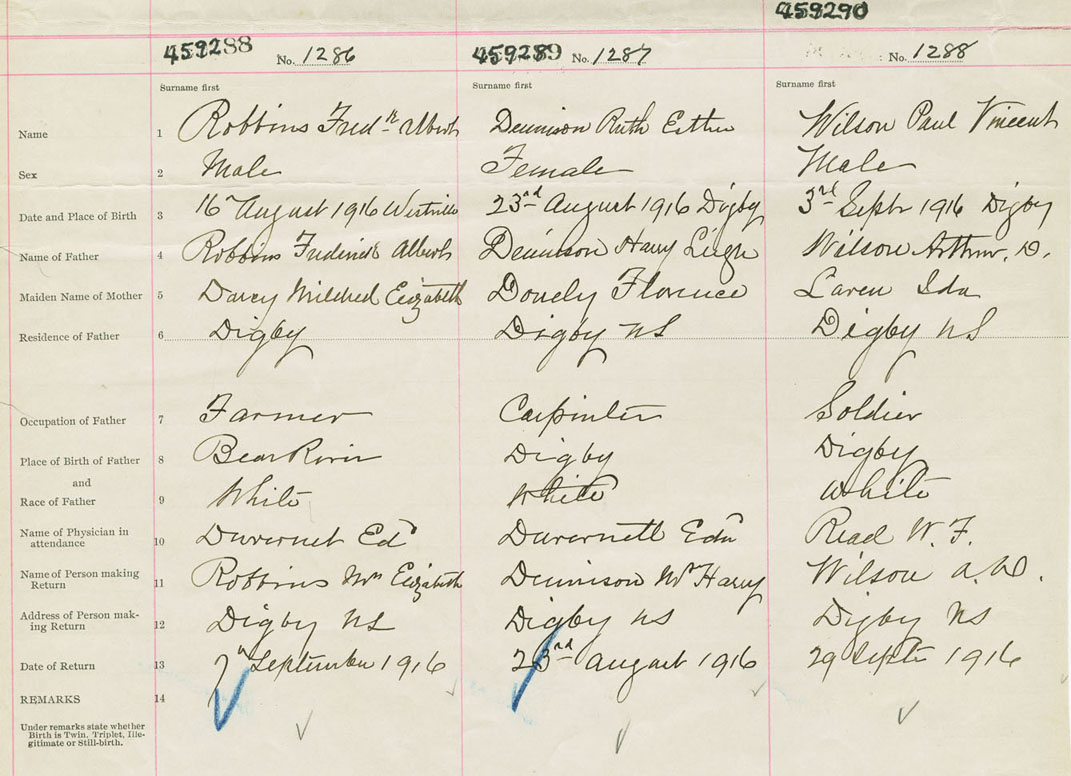 459290
459288 No. 1286 459289 No. 1287 No. 1288
Surname first Surname first Surname first
Name 1 Robbins Fredk Albert Dennison Ruth Esther Wilson Paul Vincent
Sex 2 Male Female Male
Date and Place of Birth 3 16 August 1916 23rd August 1916 Digby 3rd Septr 1916 Digby
Name of Father 4 Robbins Frederick Albert Dennison Harry Leigh Wilson Arthur. D.
Maiden Name of Mother 5 Darcy Mildred Elizabeth Florence Ida
Residence of Father 6 Digby Digby NS Digby NS
Occupation of Father 7 Farmer Carpinter Soldier
Place of Birth of Father 8 Bear River Digby Digby
and
Race of Father 9 White White White
Name of Physician in
attendance 10 Duvernet Ed Duvernett Read W. F.
Name of Person making
Return 11 Robbins Mrs Elizabeth Dennison Mr Harry Wilson A. D.
Address of Person mak-
ing Return 12 Digby NS Digby NS Digby NS
Date of Return 13 7th September 1916 23rd August 1916 29 Septr 1916
REMARKS 14
Under remarks state whether
Birth is Twin, Triplet, Ille-
gitimate or Still-birth.